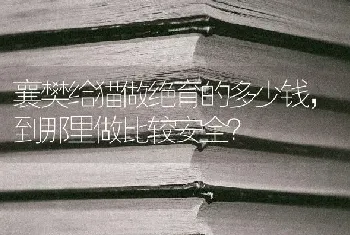 襄樊给猫做绝育的多少钱，
到那里做比较安全？